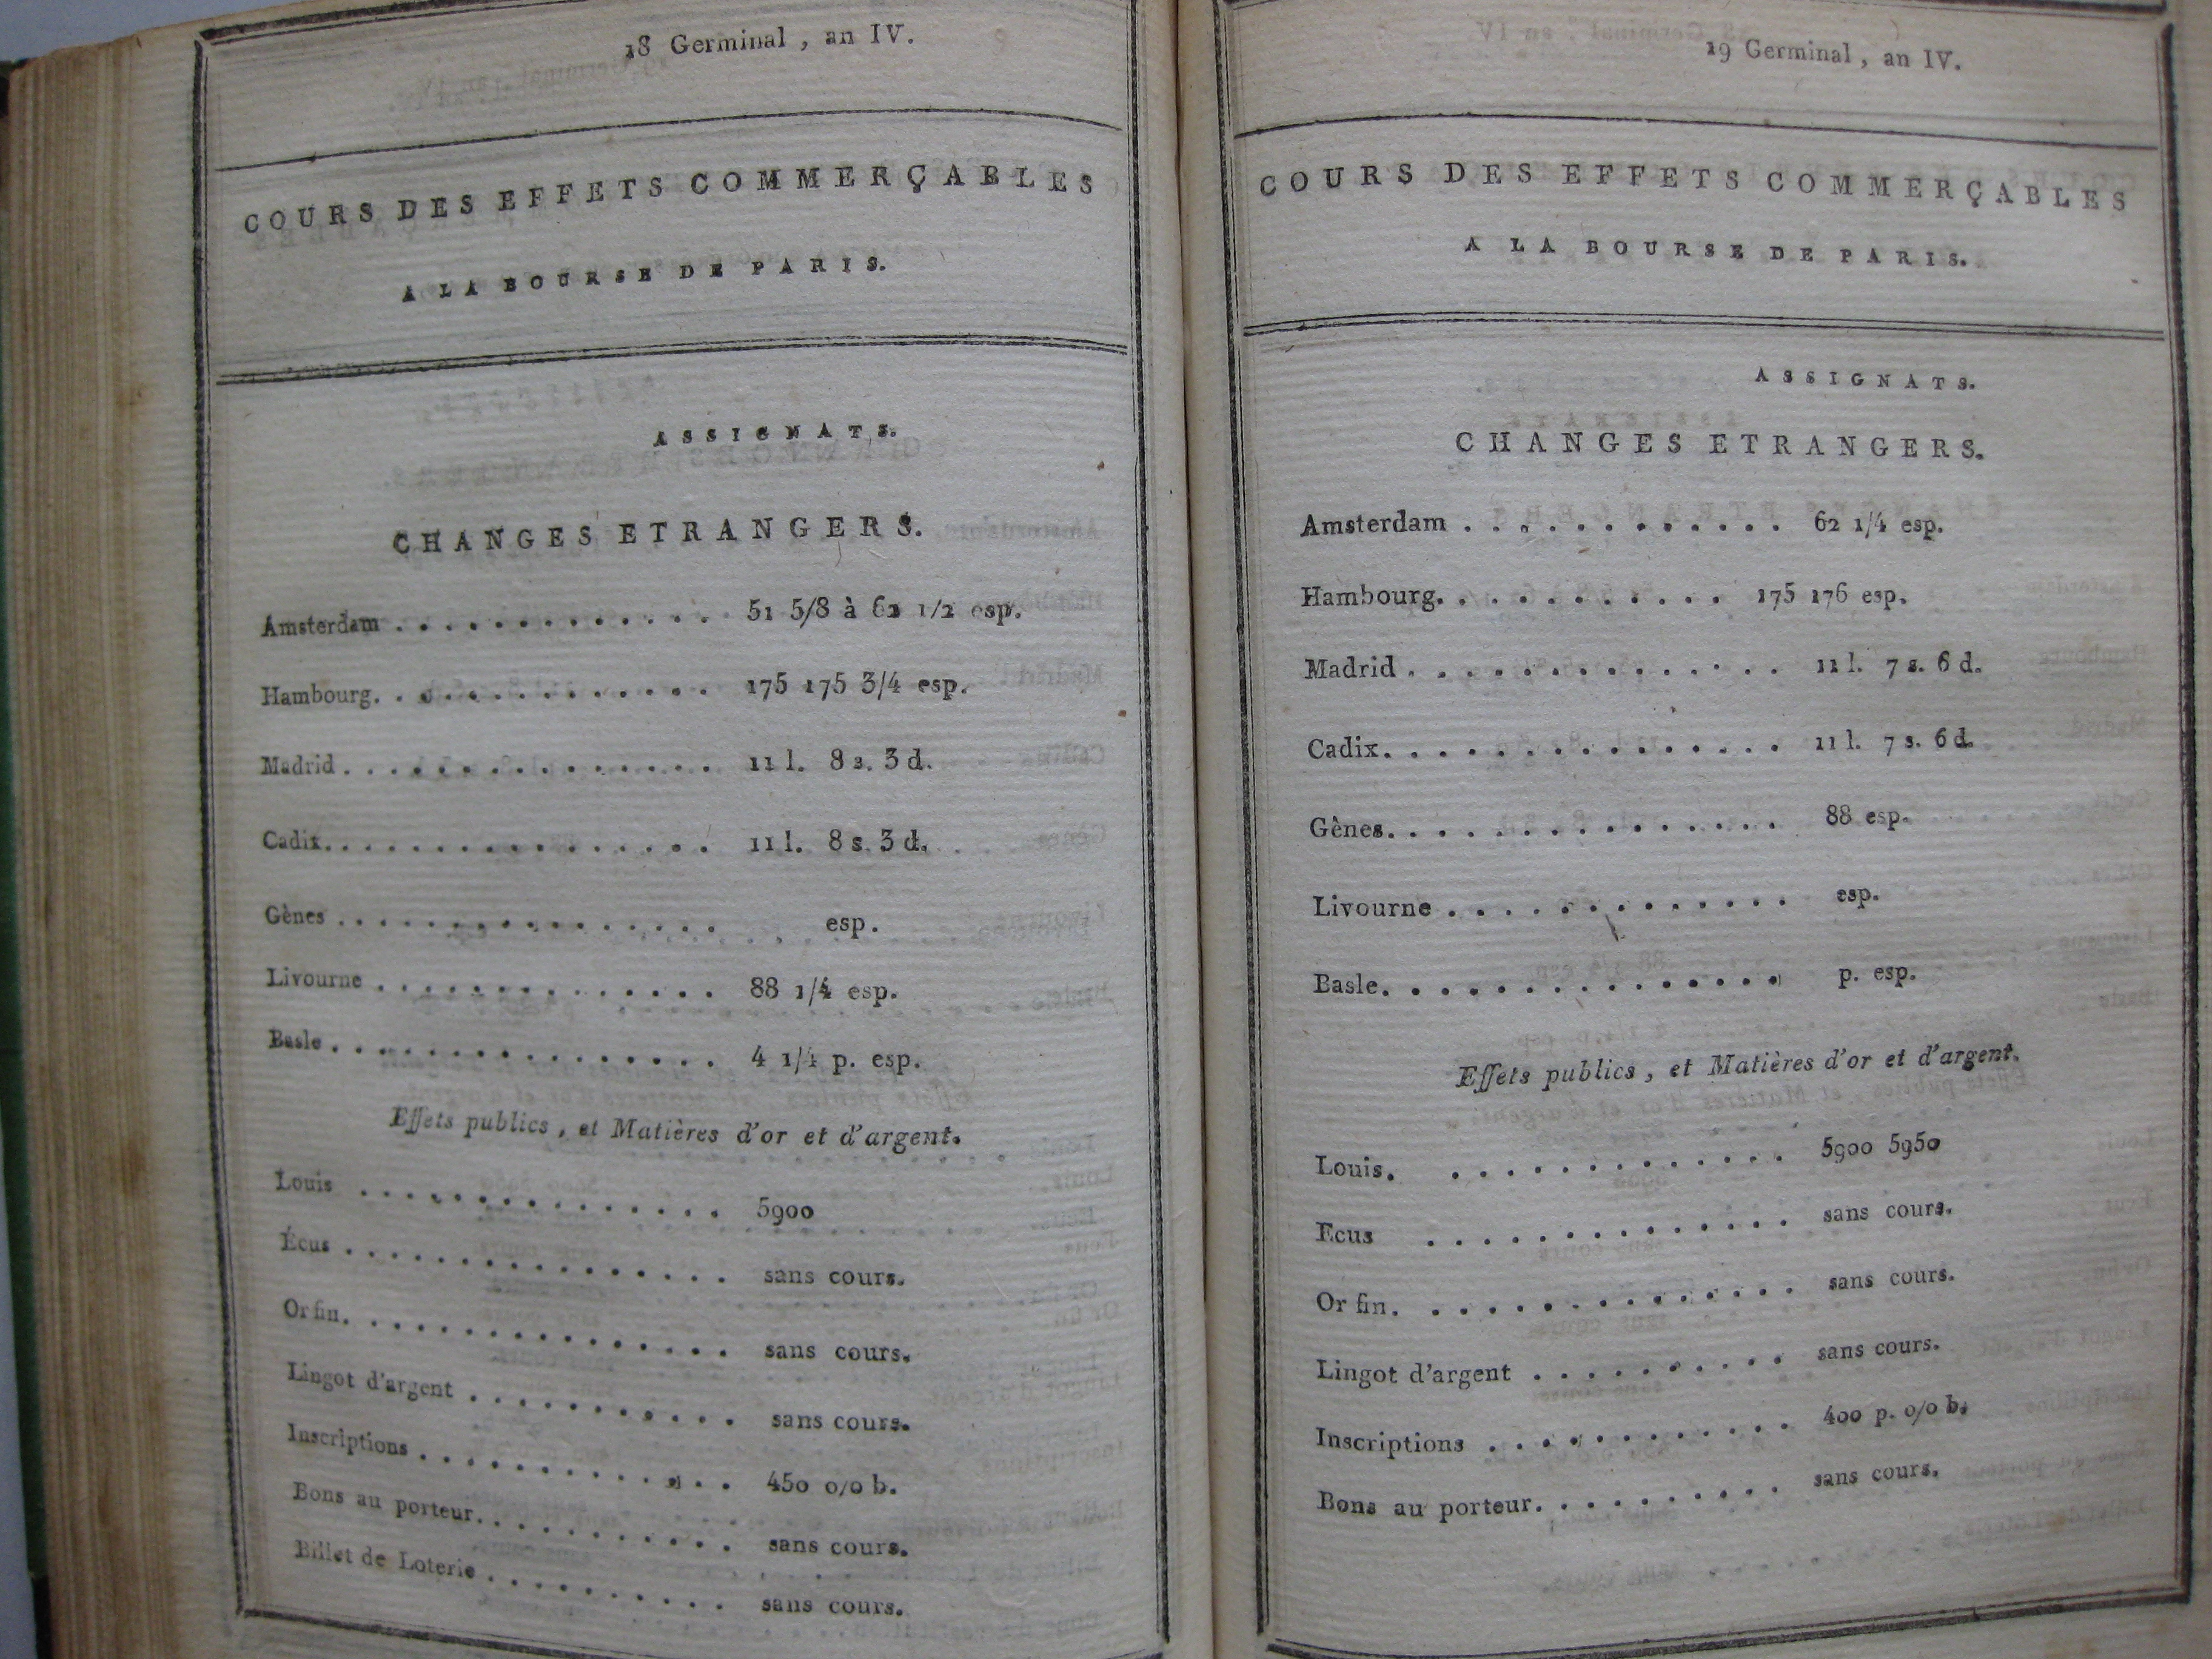 18 Germinal, an IV.
COURS DES EFFETS COMMERÇABLES
A LA BOURSE DE PARIS.
ASSIGNATS.
CHANGES ETRANGERS.
Amsterdam . . . . . . . . . . . . . 51 5/8 à 62 1/2 esp.
Hambourg. . . . . . . . . . . . . 175 175 3/4 esp.
Madrid . . . . . . . . . . . . . . 11 l. 8 s. 3 d.
Cadix. . . . . . . . . . . . . . . 11 l. 8 s. 3 d.
Gènes . . . . . . . . . . . . . . esp.
Livourne . . . . . . . . . . . . . 88 1/4 esp.
Basle . . . . . . . . . . . . . . . 4 1/4 p. esp.
Effets publics, et Matières d'or et d'argent.
Louis . . . . . . . . . . . . . . 5900
Écus . . . . . . . . . . . . . . . sans cours.
Or fin. . . . . . . . . . . . . . . sans cours.
Lingot d'argent . . . . . . . . . . sans cours.
Inscriptions . . . . . . . . . . . . 450 0/0 b.
Bons au porteur. . . . . . . . . . sans cours.
Billet de Loterie . . . . . . . . . sans cours.
19 Germinal, an IV.
COURS DES EFFETS COMMERÇABLES
A LA BOURSE DE PARIS.
ASSIGNATS.
CHANGES ETRANGERS.
Amsterdam . . . . . . . . . . . . 62 1/4 esp.
Hambourg. . . . . . . . . . . 175 176 esp.
Madrid . . . . . . . . . . . . . . 11 l. 7 s. 6 d.
Cadix. . . . . . . . . . . . . . . 11 l. 7 s. 6 d.
Gènes. . . . . . . . . . . . . . . 88 esp.
Livourne . . . . . . . . . . . . . esp.
Basle. . . . . . . . . . . . . . . p. esp.
Effets publics, et Matières d'or et d'argent.
Louis. . . . . . . . . . . . . . 5900 5950
Ecus . . . . . . . . . . . . . . sans cours.
Or fin. . . . . . . . . . . . . . . sans cours.
Lingot d'argent . . . . . . . . . . sans cours.
Inscriptions . . . . . . . . . . . . 400 p. 0/0 b.
Bons au porteur. . . . . . . . . . sans cours.